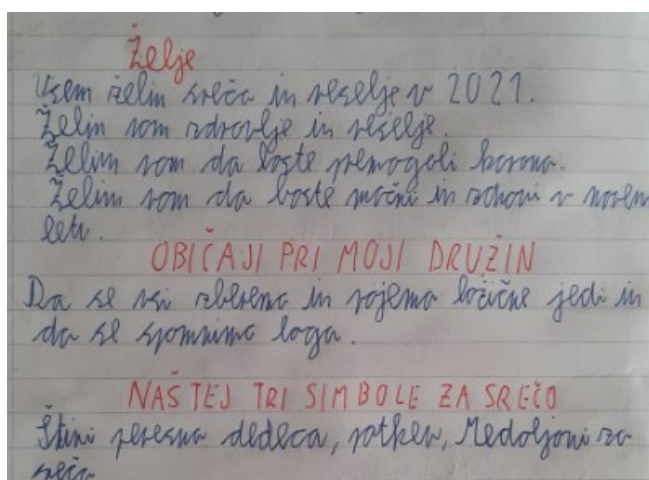 Želje
Vsem želim sreča in veselje v 2021.
Želim vam zdravlje in veselje.
Želim vam da boste premogali korona.
Želim vam da boste močni in zdravi v novem
letu.
OBIČAJI PRI MOJI DRUŽIN
Da se vsi zberemo in pojemo božične jedi in
da se spomnimo boga.
NAŠTEJ TRI SIMBOLE ZA SREČO
Štiri peresna deteca, potkev, Medoljoni za
sreča